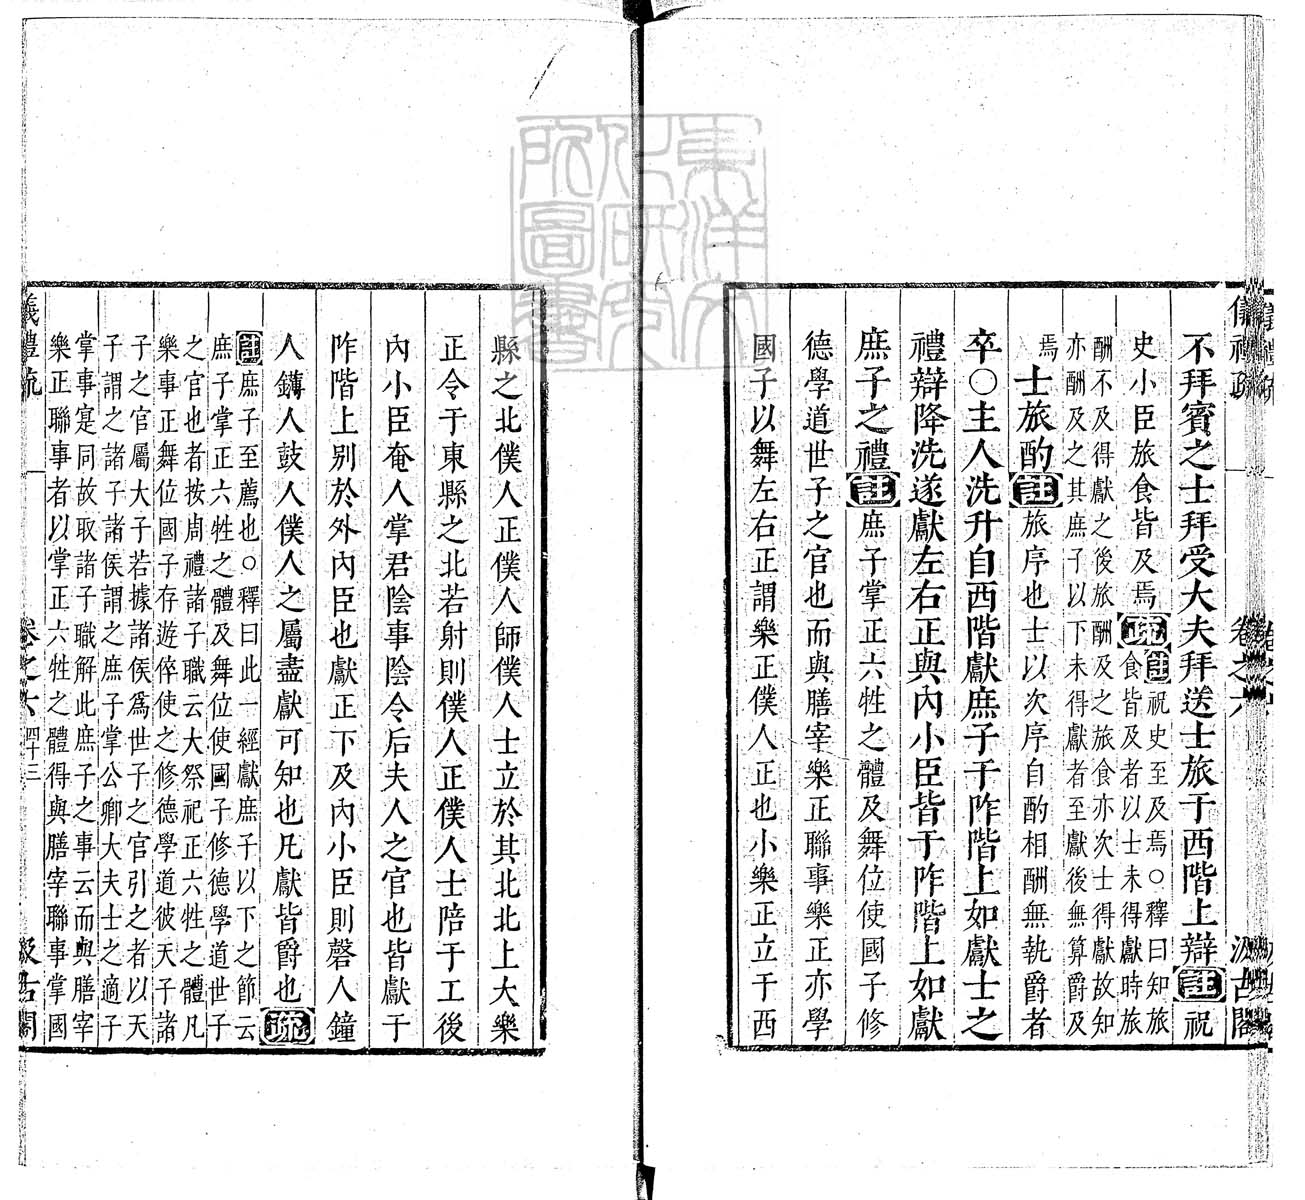 儀禮疏 卷之六 汲古閣
不拜賓之士拜受大夫拜送士旅于西階上辯註祝
史小臣旅食皆及焉疏註祝史至及焉○釋曰知旅
食皆及者以士未得獻時旅
酬不及得獻之後旅酬及之旅食亦次士得獻故知
亦酬及之其庶子以下未得獻者至獻後無算爵及
焉士旅酌註旅序也士以次序自酌相酬無執爵者
卒○主人洗升自西階獻庶子于阼階上如獻士之
禮辯降洗遂獻左右正與內小臣皆于阼階上如獻
庶子之禮註庶子掌正六牲之體及舞位使國子修
德學道世子之官也而與膳宰樂正聯事樂正亦學
國子以舞左右正謂樂正僕人正也小樂正立于西
縣之北僕人正僕人師僕人士立於其北北上大樂
正令于東縣之北若射則僕人正僕人士陪于工後
內小臣奄人掌君陰事陰令后夫人之官也皆獻于
阼階上別於外內臣也獻正下及內小臣則磬人鐘
人鎛人鼓人僕人之屬盡獻可知也凡獻皆爵也疏
註庶子至薦也○釋曰此一經獻庶子以下之節云
庶子掌正六牲之體及舞位使國子修德學道世子
之官也者按周禮諸子職云大祭祀正六牲之體凡
樂事正舞位國子存遊倅使之修德學道彼天子諸
子之官屬大子若據諸侯爲世子之官引之者以天
子謂之諸子諸侯謂之庶子掌公卿大夫士之適子
掌事寔同故取諸子職解此庶子之事云而與膳宰
樂正聯事者以掌正六牲之體得與膳宰聯事掌國
儀禮疏 卷之六 四十三 汲古閣